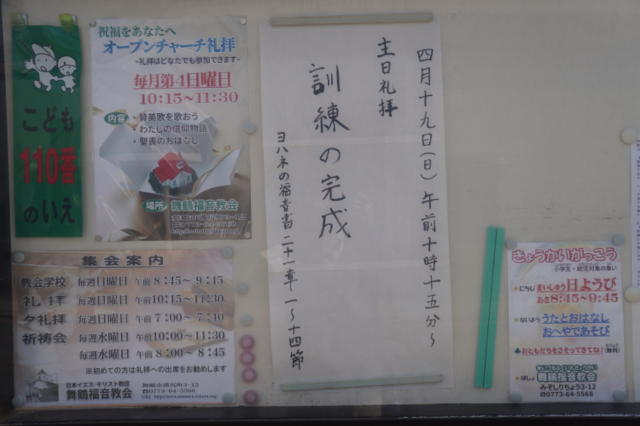 こども
110番
のいえ
祝福をあなたへ
オープンチャーチ礼拝
~礼拝はどなたでも参加できます~
毎月第4日曜日
10:15~11:30
内容
・賛美歌を歌おう
・わたしの信仰物語
・聖書のおはなし
場所
舞鶴福音教会
四月十九日(日)午前十時十五分~
主日礼拝
訓練の完成
ヨハネの福音書二十一章一~十四節
集会案内
教会学校 毎週日曜日 午前 8:45~9:45
礼拝 毎週日曜日 午前10:15~11:30
夕礼拝 毎週日曜日 午後 7:00~7:40
祈祷会 毎週水曜日 午前10:00~11:30
毎週水曜日 午後 8:00~8:45
※初めての方は礼拝への出席をお勧めします
日本イエス・キリスト教団
舞鶴福音教会
☎0773-64-5568
きょうかいがっこう
小学生・幼児対象の集い
にちじ まいしゅう日ようび
あさ8:45~9:45
ないよう うたとおはなし
おへやであそび
おともだちをさそってきてね!
(無料)
ばしょ
舞鶴福音教会
みぞしりちょう3-12
☎0773-64-5568